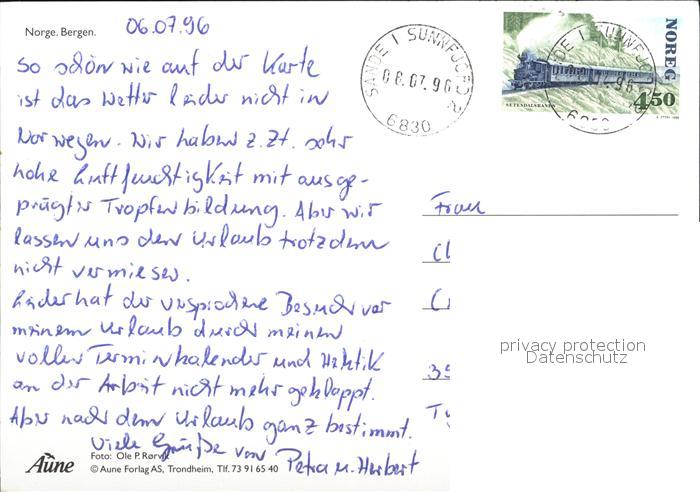 Norge. Bergen.
06.07.96
So schön wie auf der Karte
ist das Wetter leider nicht in
Norwegen. Wir haben z.Zt. sehr
hohe Luftfeuchtigkeit mit ausge-
prägter Tropfenbildung. Aber wir
lassen uns den Urlaub trotzdem
nicht vermiesen.
Leider hat der versprochene Besuch vor
meinem Urlaub durch meinen
vollen Terminkalender und Hektik
an der Arbeit nicht mehr geklappt.
Aber nach dem Urlaub ganz bestimmt.
Viele Grüße von Petra u. Herbert
Foto: Ole P. Rørvik
Aune
© Aune Forlag AS, Trondheim, Tlf. 73 91 65 40
SANDE I SUNNFJORD 2
08.07.96
6830
NOREG
4 50
SETESDALSBANEN
Frau
privacy protection
Datenschutz